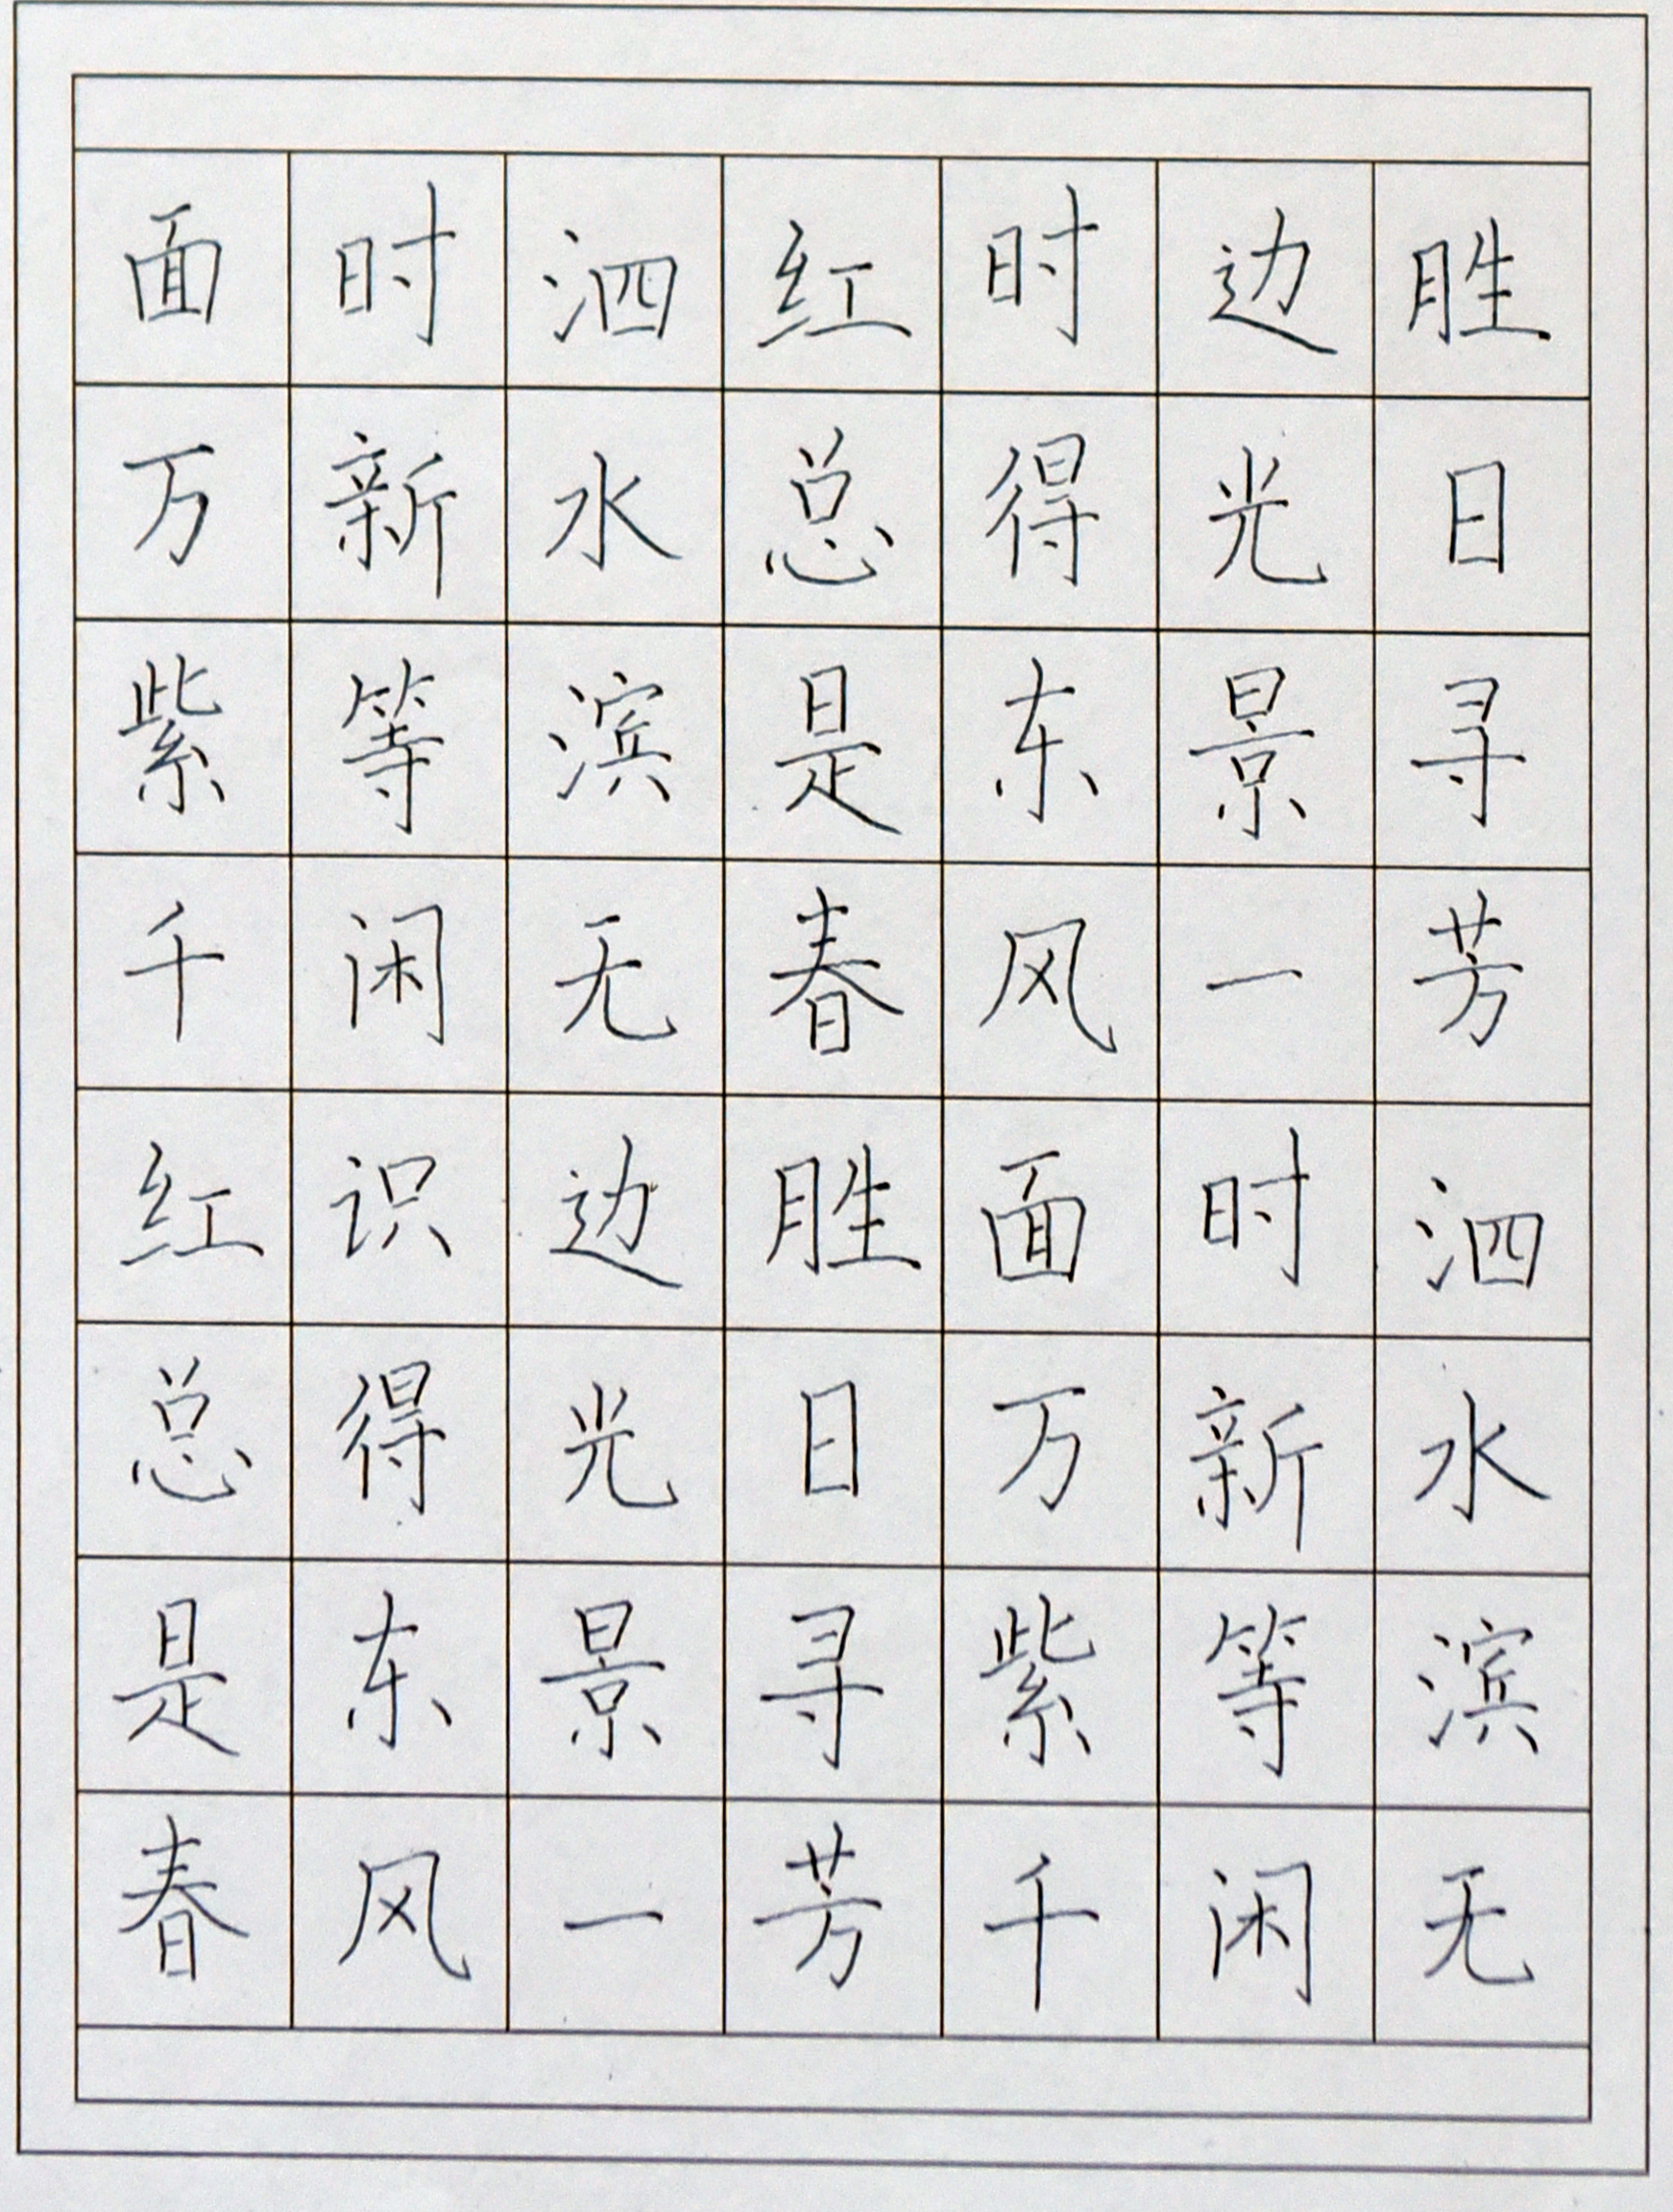 胜日寻芳泗水滨无
边光景一时新等闲
时得东风面万紫千
红总是春胜日寻芳
泗水滨无边光景一
时新等闲识得东风
面万紫千红总是春